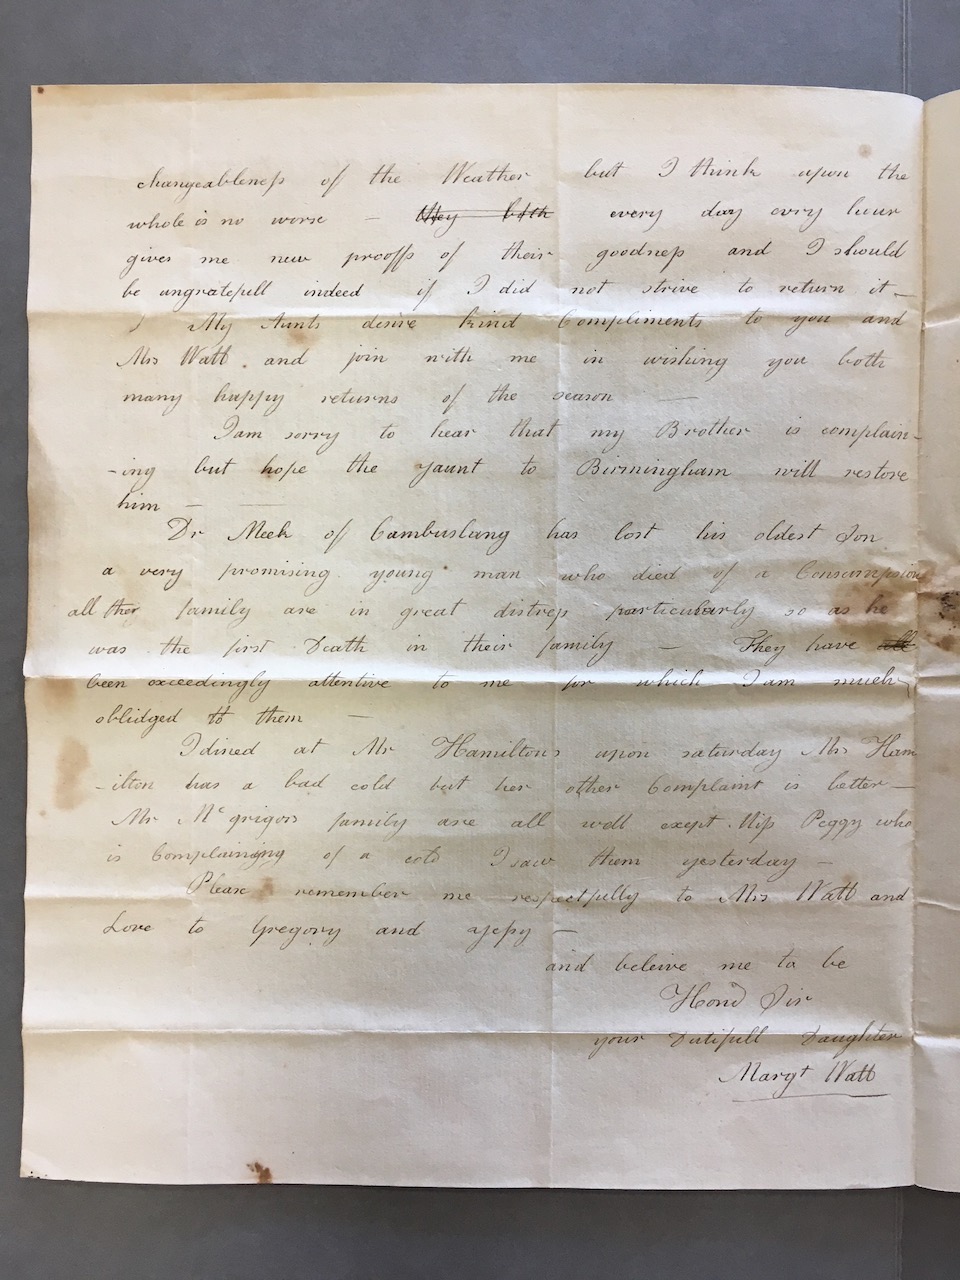 changeableness of the Weather but I think upon the
whole is no worse — they both every day evry hour
gives me new prooffs of their goodness and I should
be ungratefull indeed if I did not strive to return it —
My Aunts desire kind Compliments to you and
Mrs Watt and join with me in wishing you both
many happy returns of the season —
I am sorry to hear that my Brother is complain-
-ing but hope the yaunt to Birmingham will restore
him —
Dr Meek of Cambuslang has lost his oldest Son
a very promising young man who died of a Consumpsion
all ther family are in great distress particurlarly so as he
was the first Death in their family — They have all
been exceedingly attentive to me for which I am much
oblidged to them —
I dined at Mr Hamiltons upon saturday Mrs Ham
-ilton has a bad cold but her other Complaint is better —
Mr Mcgrigors family are all well exept Miss Peggy who
is Complaining of a cold I saw them yesterday —
Please remember me respectfully to Mrs Watt and
Love to Gregory and Jessy —
and beleive me to be
Hond Sir
your Dutifull Daughter
Margt Watt